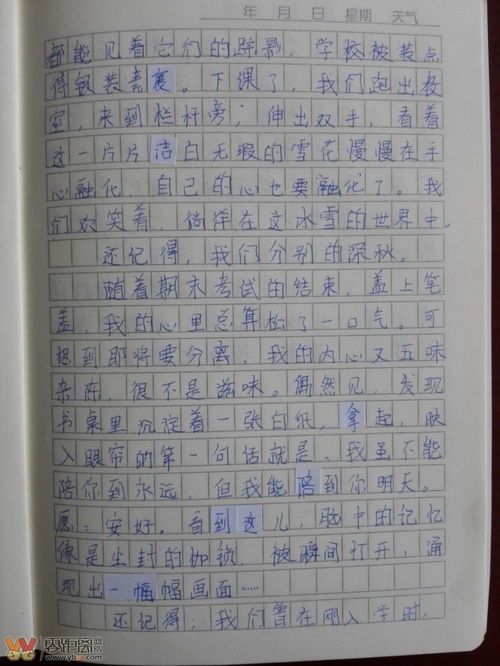 年 月 日 星期 天气
都能见着它们的踪影，学校被装点
得银装素裹。下课了，我们跑出教
室，来到栏杆旁，伸出双手，看着
这一片片洁白无瑕的雪花慢慢在手
心融化，自己的心也要融化了。我
们欢笑着，徜徉在这冰雪的世界中。
还记得，我们分别的深秋。
随着期末考试的结束，盖上笔
盖，我的心里总算松了一口气。可
想到即将要分离，我的内心又五味
杂陈，很不是滋味。偶然见，发现
书桌里沉淀着一张白纸，拿起，映
入眼帘的第一句话就是，我虽不能
陪你到永远，但我能陪到你明天。
愿：安好。看到这儿，脑中的记忆
像是尘封的枷锁，被瞬间打开，涌
现出一幅幅画面……
还记得，我们曾在刚入学时，
零距离
www.ybxw.com